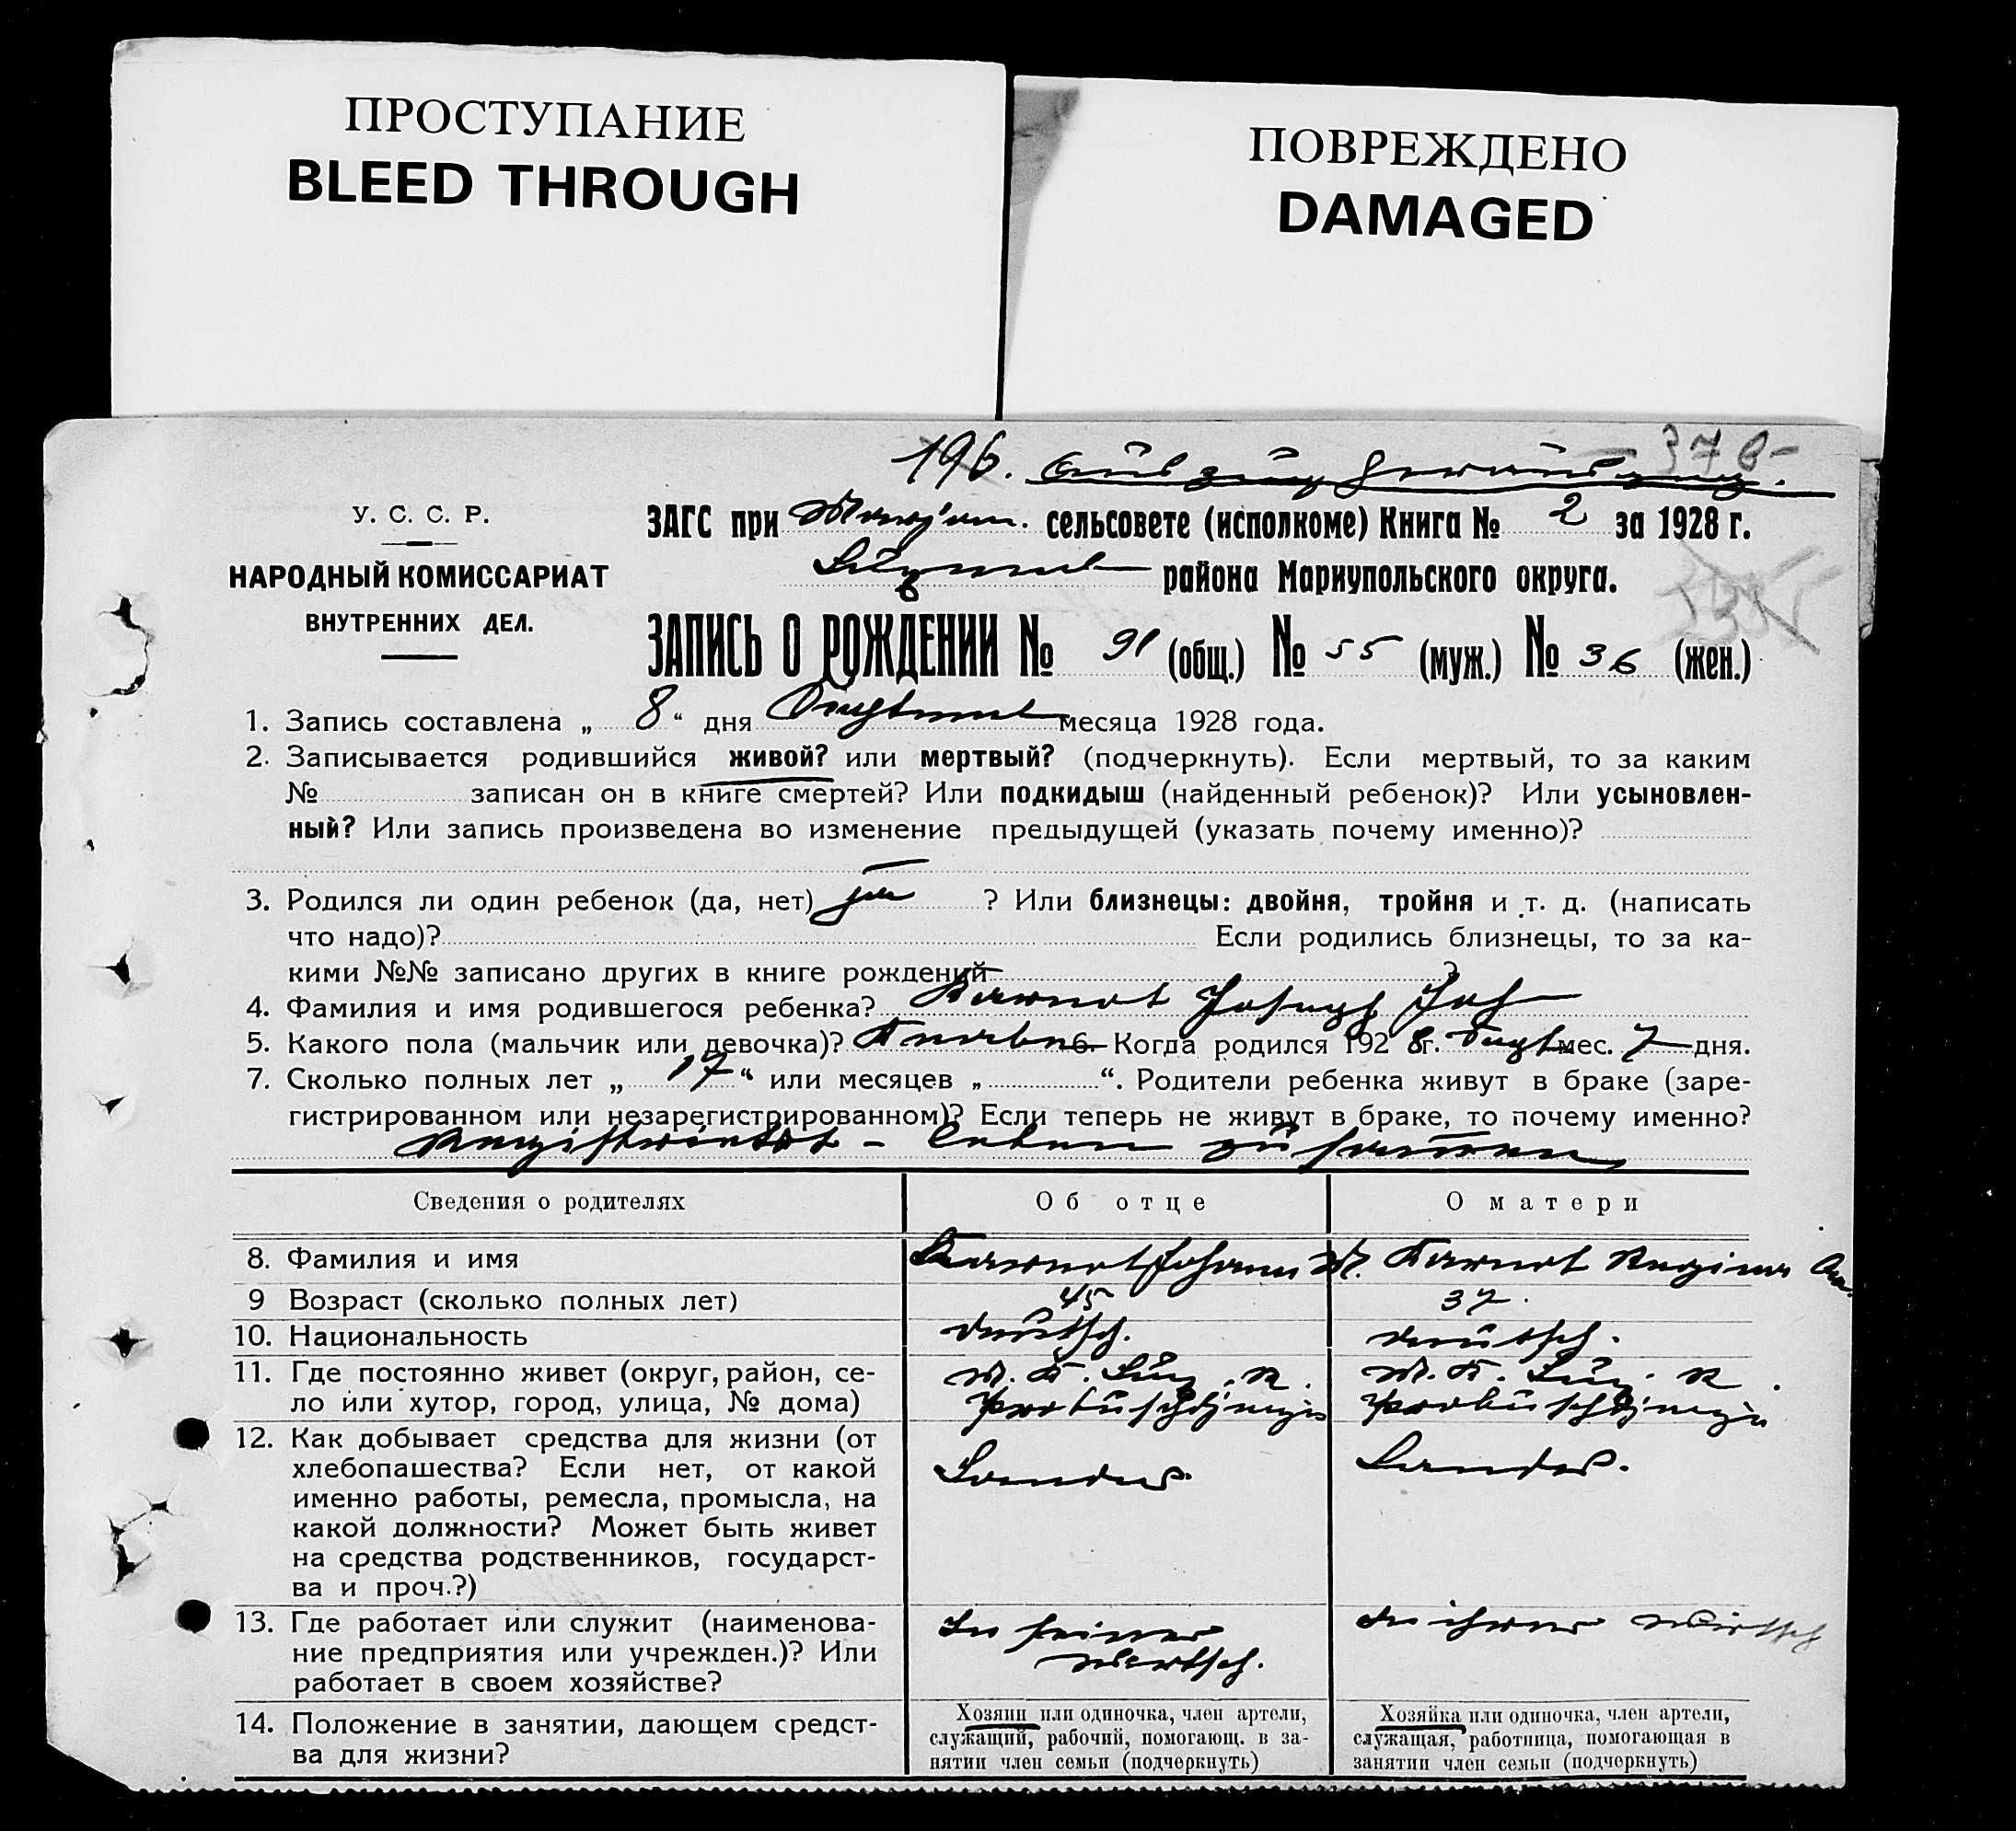 ПРОСТУПАНИЕ
BLEED THROUGH
ПОВРЕЖДЕНО
DAMAGED
196. Auszug herausgeg. 378-
У. С. С. Р.
НАРОДНЫЙ КОМИССАРИАТ
ВНУТРЕННИХ ДЕЛ.
ЗАГС при сельсовете (исполкоме) Книга № 2 за 1928 г.
района Мариупольского округа.
ЗАПИСЬ О РОЖДЕНИИ № 91 (общ.) № 55 (муж.) № 36 (жен.)
1. Запись составлена „ 8 “ дня месяца 1928 года.
2. Записывается родившийся живой? или мертвый? (подчеркнуть). Если мертвый, то за каким
№ записан он в книге смертей? Или подкидыш (найденный ребенок)? Или усыновлен-
ный? Или запись произведена во изменение предыдущей (указать почему именно)?
3. Родился ли один ребенок (да, нет) ja ? Или близнецы: двойня, тройня и т. д. (написать
что надо)? Если родились близнецы, то за ка-
кими №№ записано других в книге рождений ?
4. Фамилия и имя родившегося ребенка? Joseph Joh
5. Какого пола (мальчик или девочка)? Knabe 6. Когда родился 192 8 г. Sept мес. 7 дня.
7. Сколько полных лет „ 17 “ или месяцев „ “. Родители ребенка живут в браке (заре-
гистрированном или незарегистрированном)? Если теперь не живут в браке, то почему именно?
Registriert - leben zusammen
Сведения о родителях Об отце О матери
8. Фамилия и имя Johann Regina
9 Возраст (сколько полных лет) 45 37.
10. Национальность deutsch. deutsch.
11. Где постоянно живет (округ, район, се-
ло или хутор, город, улица, № дома)
M. K. Lux. R. M. K. Lux. R.
12. Как добывает средства для жизни (от
хлебопашества? Если нет, от какой
именно работы, ремесла, промысла, на
какой должности? Может быть живет
на средства родственников, государст-
ва и проч.?)
13. Где работает или служит (наименова-
ние предприятия или учрежден.)? Или
работает в своем хозяйстве?
In seiner
Wirtsch.
In ihrer Wirtsch
14. Положение в занятии, дающем средст-
ва для жизни?
Хозяин или одиночка, член артели,
служащий, рабочий, помогающ. в за-
нятии член семьи (подчеркнуть)
Хозяйка или одиночка, член артели,
служащая, работница, помогающая в
занятии член семьи (подчеркнуть)